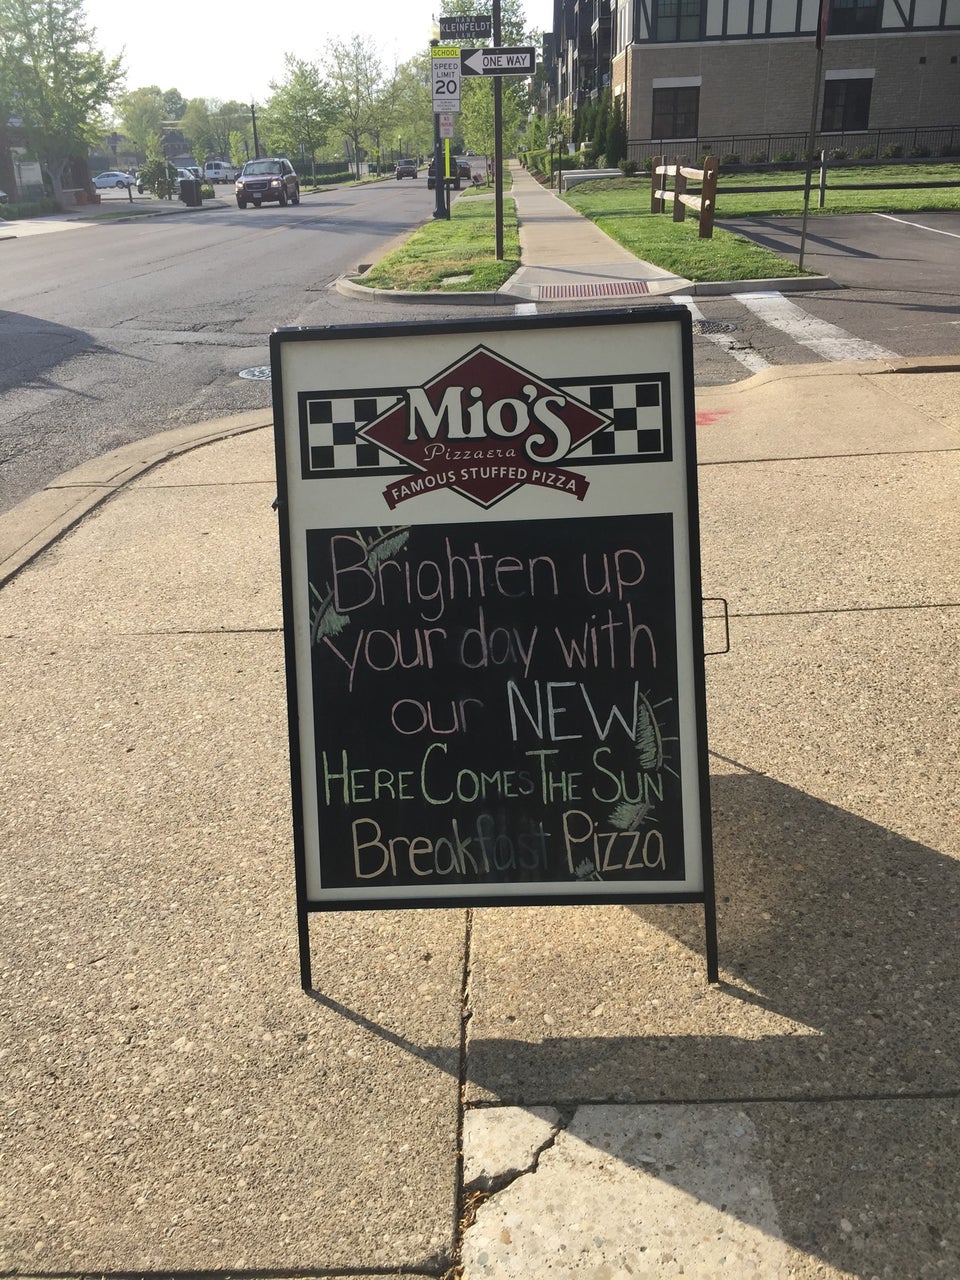 HANK
KLEINFELDT
LANE
SCHOOL
SPEED
LIMIT
20
ONE WAY
Mio's
Pizzaera
FAMOUS STUFFED PIZZA
Brighten up
your day with
our NEW
HERE COMES THE SUN
Breakfast Pizza